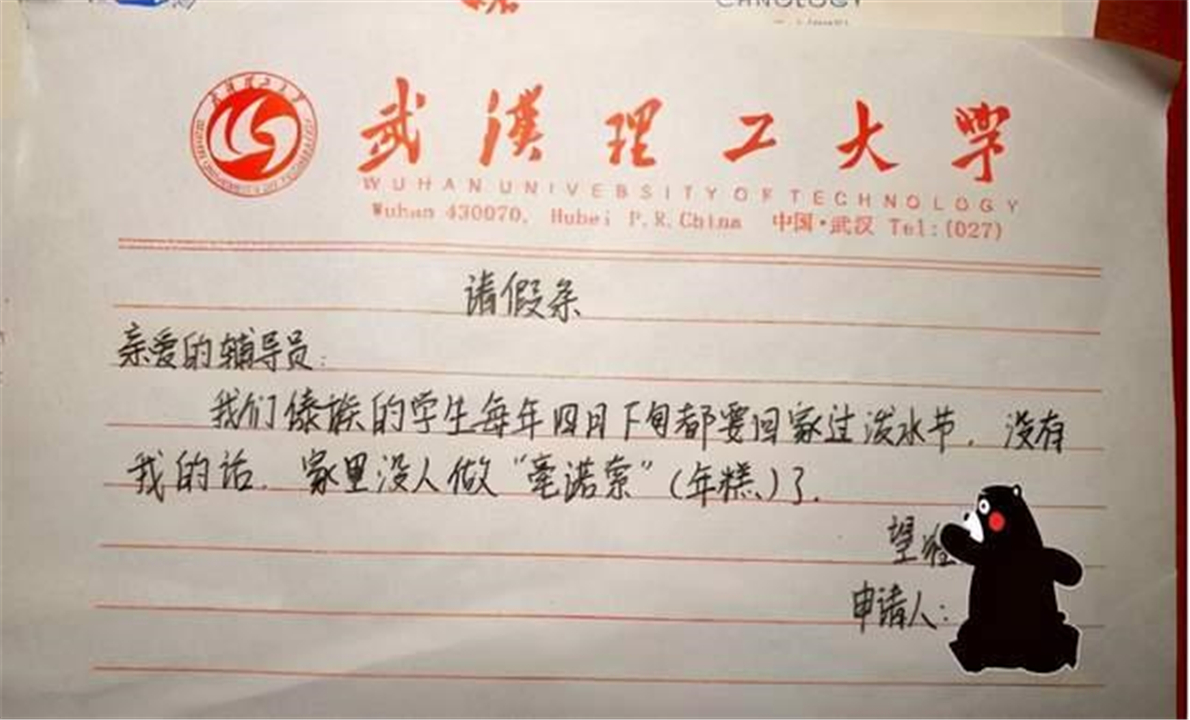 CHNOLOGY
武漢理工大学
WUHAN UNIVERSITY OF TECHNOLOGY
Wuhan 430070, Hubei P.R.China 中国·武汉 Tel:(027)
请假条
亲爱的辅导员:
我们傣族的学生每年四月下旬都要回家过泼水节，没有
我的话，家里没人做“毫诺索”(年糕)了.
望
申请人: